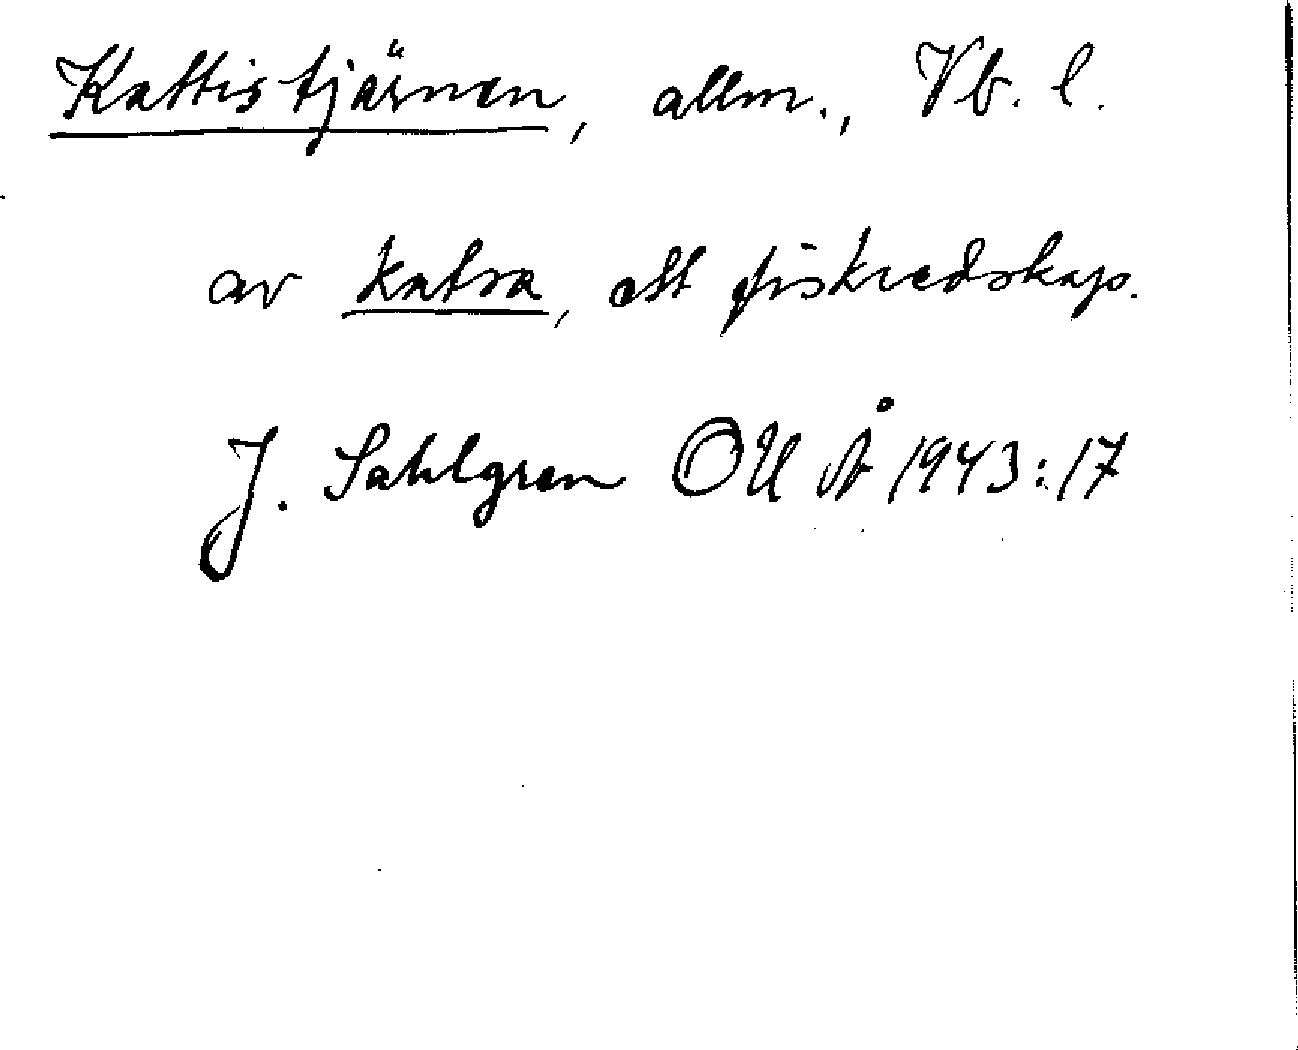 Kattistjärnen, allm., Vb. l.
av katsa, ett fiskredskap.
J. Sahlgren OUÅ 1943:17